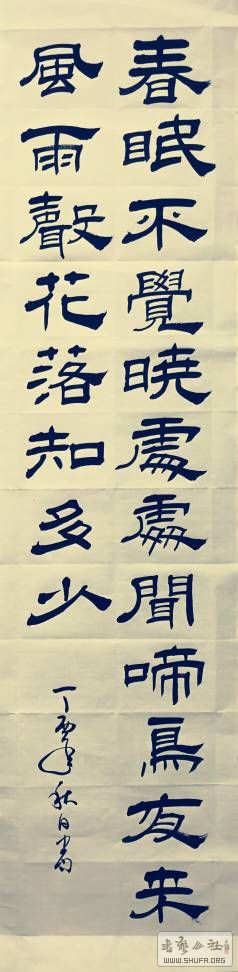 春眠不覺曉處處聞啼鳥夜来
風雨聲花落知多少
丁酉年秋日書
書藝公社
WWW.SHUFA.ORG